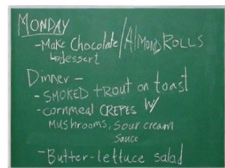 MONDAY
-Make Chocolate/Almond ROLLS
dessert
Dinner -
- SMOKED tROUT on toast
- cornmeal CREPES W/
MUSHROOMS, Sour cream
Sauce
- Butter-lettuce salad